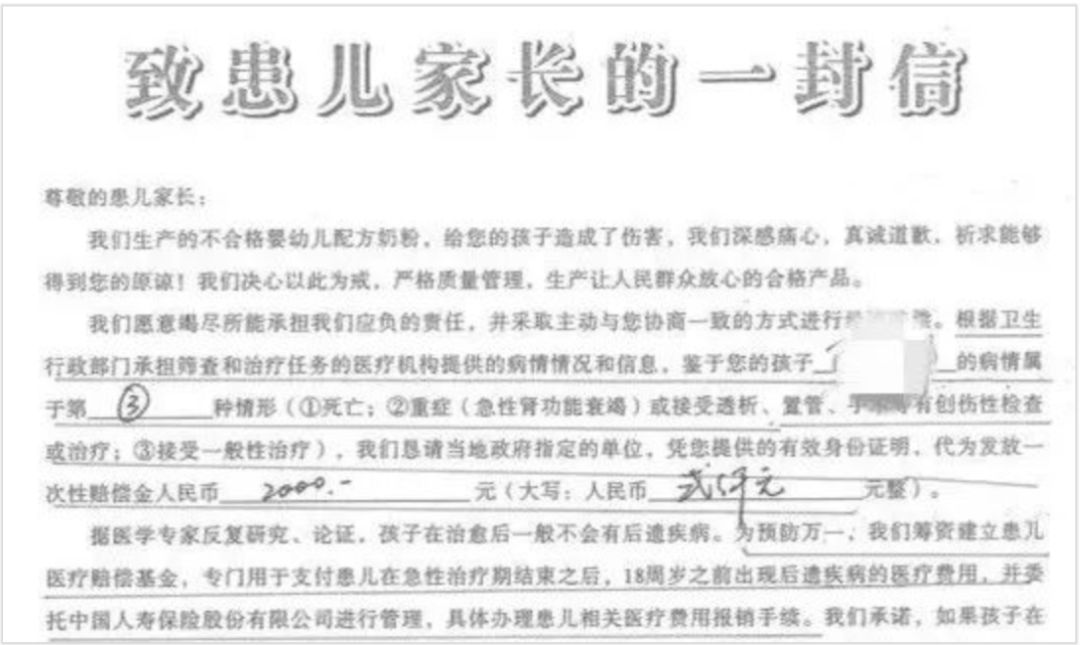 致患儿家长的一封信
尊敬的患儿家长：
我们生产的不合格婴幼儿配方奶粉，给您的孩子造成了伤害，我们深感痛心，真诚道歉，祈求能够
得到您的原谅！我们决心以此为戒，严格质量管理，生产让人民群众放心的合格产品。
我们愿意竭尽所能承担我们应负的责任，并采取主动与您协商一致的方式进行。根据卫生
行政部门承担筛查和治疗任务的医疗机构提供的病情情况和信息，鉴于您的孩子 的病情属
于第 ③ 种情形（①死亡；②重症（急性肾功能衰竭）或接受透析、置管、有创伤性检查
或治疗；③接受一般性治疗），我们恳请当地政府指定的单位，凭您提供的有效身份证明，代为发放一
次性赔偿金人民币 2000.- 元（大写：人民币 贰仟元 元整）。
据医学专家反复研究、论证，孩子在治愈后一般不会有后遗疾病。为预防万一，我们筹资建立患儿
医疗赔偿基金，专门用于支付患儿在急性治疗期结束之后，18周岁之前出现后遗疾病的医疗费用，并委
托中国人寿保险股份有限公司进行管理，具体办理患儿相关医疗费用报销手续。我们承诺，如果孩子在